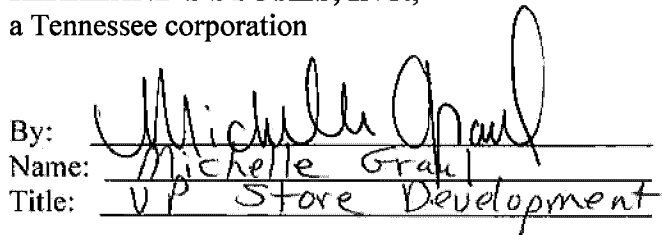 a Tennessee corporation
By: Michelle Graul
Name: Michelle Graul
Title: VP Store Development